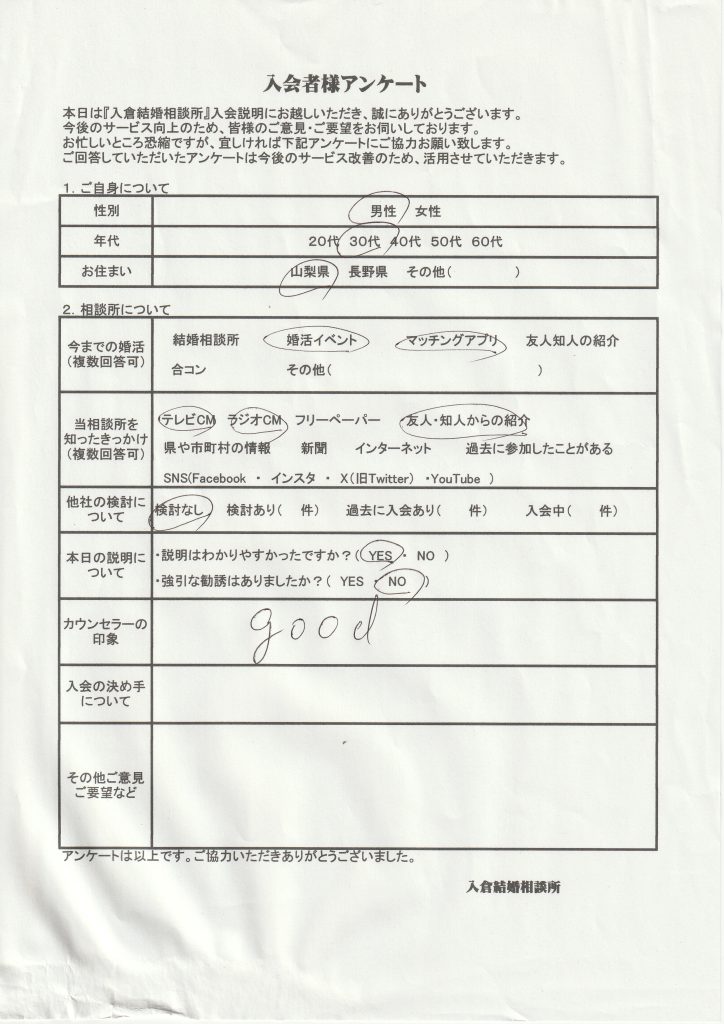 入会者様アンケート
本日は『入倉結婚相談所』入会説明にお越しいただき、誠にありがとうございます。
今後のサービス向上のため、皆様のご意見・ご要望をお伺いしております。
お忙しいところ恐縮ですが、宜しければ下記アンケートにご協力お願い致します。
ご回答していただいたアンケートは今後のサービス改善のため、活用させていただきます。
1．ご自身について
性別 男性 女性
年代 20代 30代 40代 50代 60代
お住まい 山梨県 長野県 その他（ ）
2．相談所について
今までの婚活 結婚相談所 婚活イベント マッチングアプリ 友人知人の紹介
（複数回答可） 合コン その他（ ）
当相談所を テレビCM ラジオCM フリーペーパー 友人・知人からの紹介
知ったきっかけ 県や市町村の情報 新聞 インターネット 過去に参加したことがある
（複数回答可） SNS(Facebook ・ インスタ ・ X（旧Twitter） ・YouTube )
他社の検討に
ついて 検討なし 検討あり（ 件） 過去に入会あり（ 件） 入会中（ 件）
本日の説明に ・説明はわかりやすかったですか？（ YES ・ NO ）
ついて ・強引な勧誘はありましたか？（ YES ・ NO ）
カウンセラーの
印象 good
入会の決め手
について
その他ご意見
ご要望など
アンケートは以上です。ご協力いただきありがとうございました。
入倉結婚相談所